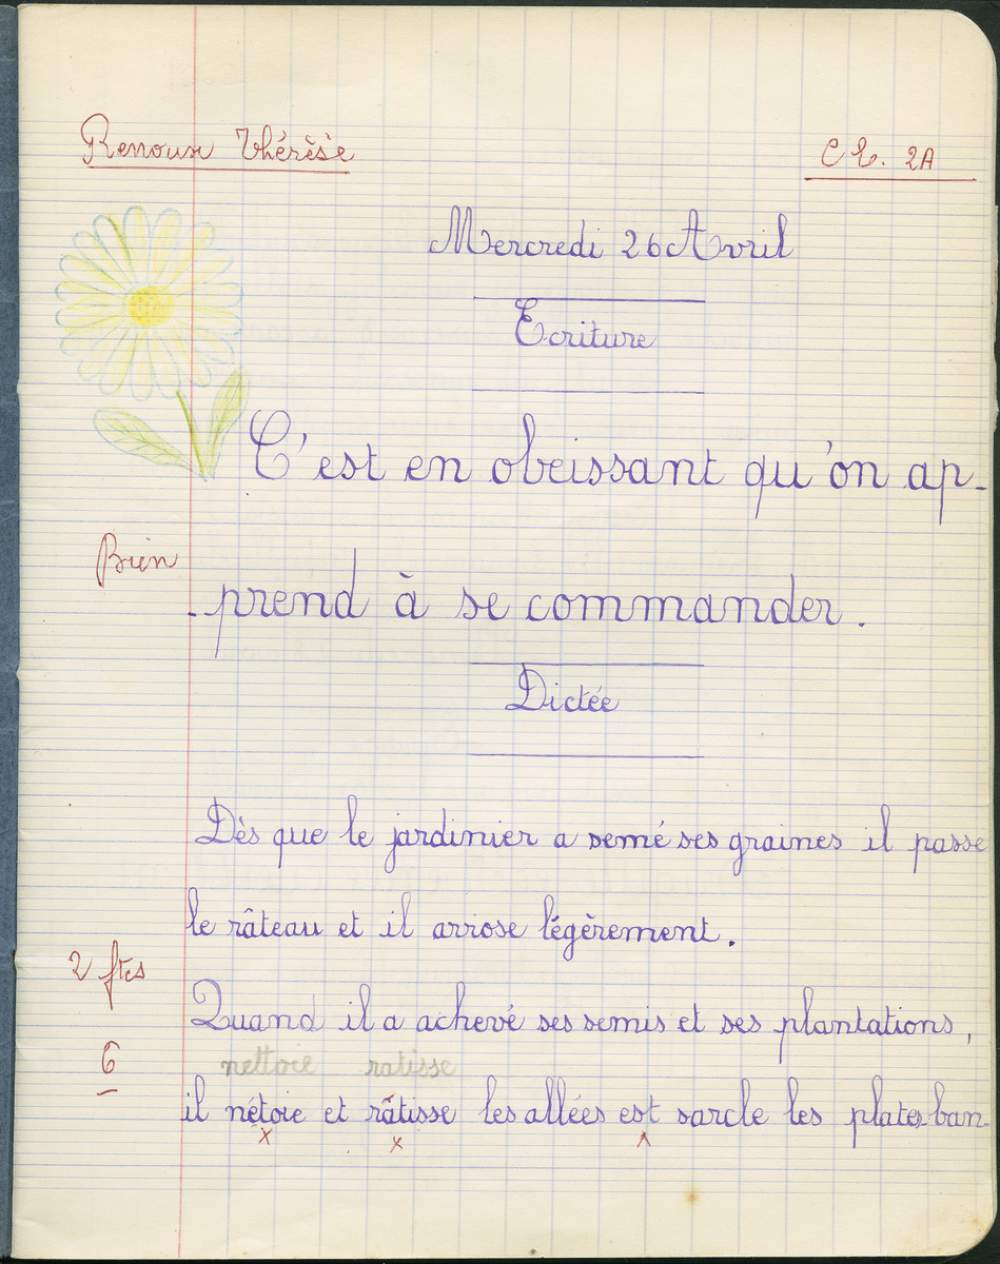 Renoux Thérèse
Cl. 2A
Mercredi 26 Avril
Ecriture
C'est en obeissant qu'on ap-
Bien
-prend à se commander.
Dictée
Dès que le jardinier a semé ses graines il passe
le râteau et il arrose légèrement.
2 ftes
Quand il a achevé ses semis et ses plantations,
6
nettoie ratisse
il nétoie et râtisse les allées est sarcle les plates-ban
x x ^